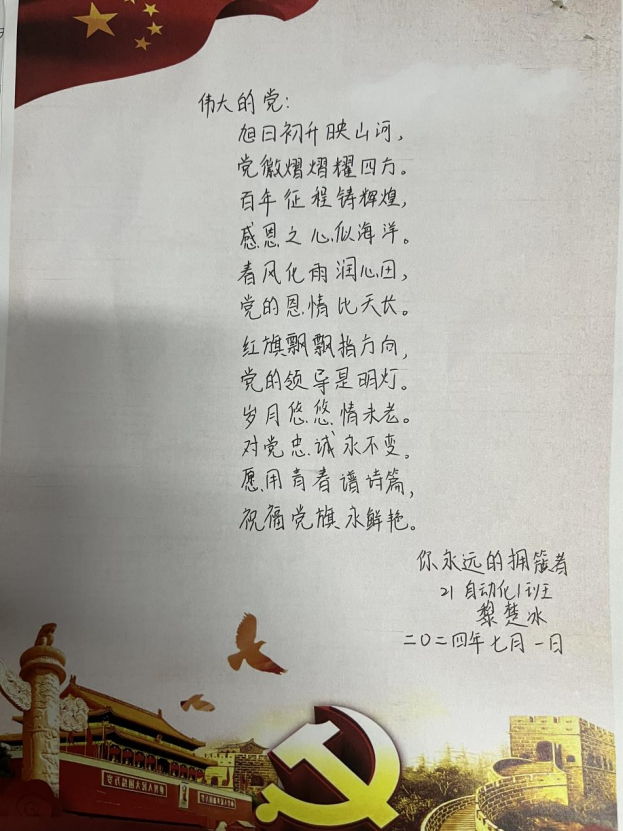 伟大的党：
旭日初升映山河，
党徽熠熠耀四方。
百年征程铸辉煌，
感恩之心似海洋。
春风化雨润心田，
党的恩情比天长。
红旗飘飘指方向，
党的领导是明灯。
岁月悠悠情未老。
对党忠诚永不变。
愿用青春谱诗篇，
祝福党旗永鲜艳。
你永远的拥簇者
21自动化1班
黎楚冰
二〇二四年七月一日